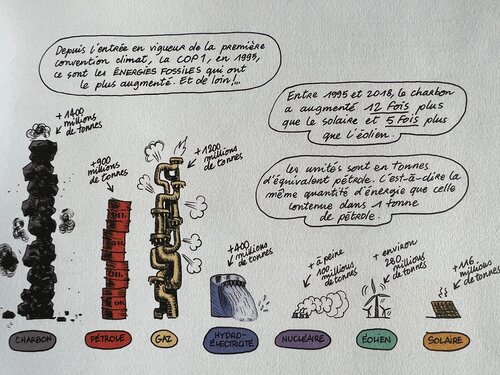 Depuis l'entrée en vigueur de la première
convention climat, la COP1, en 1995,
ce sont les ÉNERGIES FOSSILES qui ont
le plus augmenté. Et de loin !...
Entre 1995 et 2018, le charbon
a augmenté 12 fois plus
que le solaire et 5 fois plus
que l'éolien.
Les unités sont en tonnes
d'équivalent pétrole. C'est-à-dire la
même quantité d'énergie que celle
contenue dans 1 tonne
de pétrole.
+1400
millions
de tonnes
+900
millions
de tonnes
+1200
millions
de tonnes
+400
millions
de tonnes
+ à peine
100
millions
de tonnes
+ environ
280
millions
de tonnes
+116
millions
de tonnes
OIL
OIL
OIL
CHARBON
PÉTROLE
GAZ
HYDRO-
ÉLECTRICITÉ
NUCLÉAIRE
ÉOLIEN
SOLAIRE